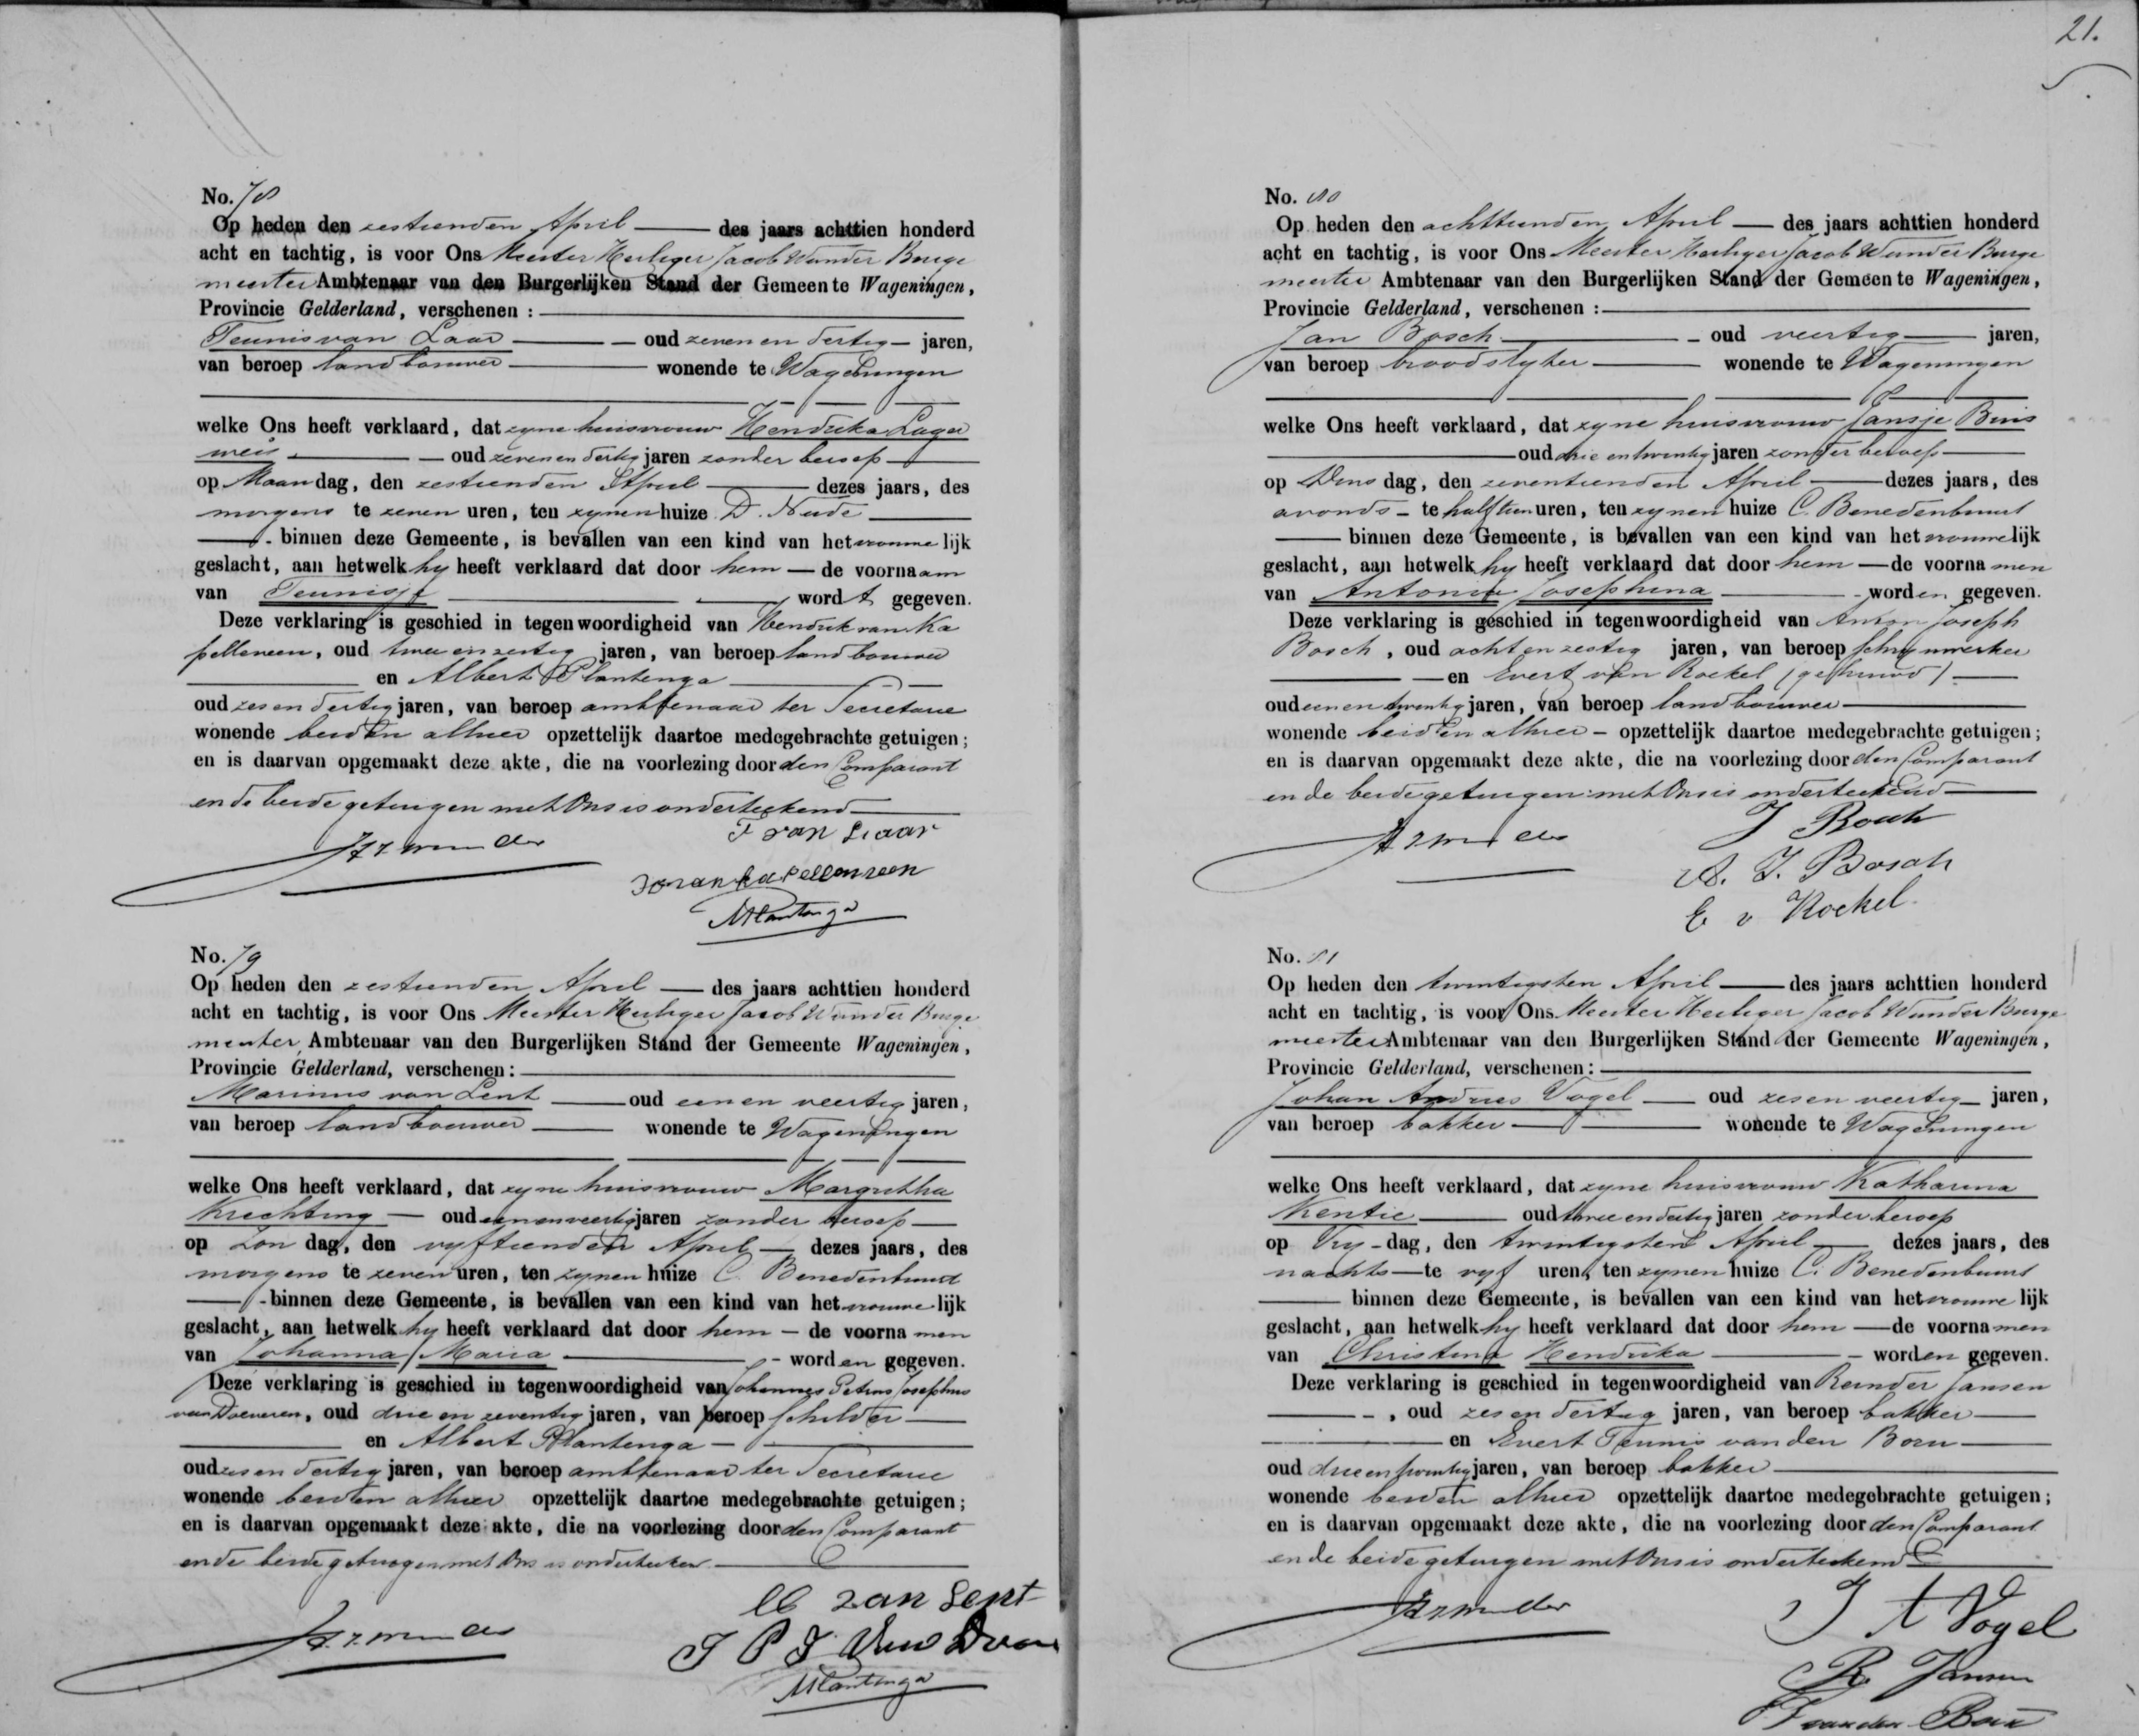 No. 78
Op heden den zestienden April des jaars achttien honderd
acht en tachtig, is voor Ons Meester Herliger Jacob Wunder Burge
meester Ambtenaar van den Burgerlijken Stand der Gemeente Wageningen,
Provincie Gelderland, verschenen :
Teunis van Laar oud zeven en dertig jaren,
van beroep landbouwer wonende te Wageningen
welke Ons heeft verklaard, dat zyne huisvrouw Hendrika Lager
weij oud zevenendertig jaren zonder beroep
op Maandag, den zestienden April dezes jaars, des
morgens te zeven uren, ten zynen huize D. Nude
binnen deze Gemeente, is bevallen van een kind van het vrouwelijk
geslacht, aan hetwelk hy heeft verklaard dat door hem de voornaam
van Teunisje wordt gegeven.
Deze verklaring is geschied in tegenwoordigheid van Hendrik van Ka
pelleveen, oud twee en zestig jaren, van beroep landbouwer
en Albert Plantenga
oud zes en dertig jaren, van beroep ambtenaar ter Secretarie
wonende beiden alhier opzettelijk daartoe medegebrachte getuigen;
en is daarvan opgemaakt deze akte, die na voorlezing door den Comparant
en de beide getuigen met Ons is onderteekend
T van Laar
van kapelleveen
APlantenga
No. 79
Op heden den zestienden April des jaars achttien honderd
acht en tachtig, is voor Ons Meester Herliger Jacob Wunder Burge
meester Ambtenaar van den Burgerlijken Stand der Gemeente Wageningen,
Provincie Gelderland, verschenen:
Marinus van Lent oud een en veertig jaren,
van beroep landbouwer wonende te Wageningen
welke Ons heeft verklaard, dat zyne huisvrouw Margretha
Krechting oud eenenveertig jaren zonder beroep
op Zondag, den vyftienden April dezes jaars, des
morgens te zeven uren, ten zynen huize C Benedenbuurt
binnen deze Gemeente, is bevallen van een kind van het vrouwelijk
geslacht, aan hetwelk hy heeft verklaard dat door hem de voornamen
van Johanna Maria worden gegeven.
Deze verklaring is geschied in tegenwoordigheid van Johannes Petrus Josephus
van Doeveren, oud drie en zeventig jaren, van beroep schilder
en Albert Plantenga
oud zes en dertig jaren, van beroep ambtenaar ter Secretarie
wonende beiden alhier opzettelijk daartoe medegebrachte getuigen;
en is daarvan opgemaakt deze akte, die na voorlezing door den Comparant
en de beide getuigen met Ons is onderteekend
M van Lent
J P J van Doeve
APlantenga
21.
No. 80
Op heden den achttienden April des jaars achttien honderd
acht en tachtig, is voor Ons Meester Herliger Jacob Wunder Burge
meester Ambtenaar van den Burgerlijken Stand der Gemeente Wageningen,
Provincie Gelderland, verschenen :
Jan Bosch oud veertig jaren,
van beroep broodslyter wonende te Wageningen
welke Ons heeft verklaard, dat zyne huisvrouw Jansje Buis
oud drie en twintig jaren zonder beroep
op Dinsdag, den zeventienden April dezes jaars, des
avonds te half tien uren, ten zynen huize C. Benedenbuurt
binnen deze Gemeente, is bevallen van een kind van het vrouwelijk
geslacht, aan hetwelk hy heeft verklaard dat door hem de voornamen
van Antonia Josephina worden gegeven.
Deze verklaring is geschied in tegenwoordigheid van Anton Joseph
Bosch, oud acht en zestig jaren, van beroep schrynwerker
en Evert van Roekel (gehuwd)
oud een en twintig jaren, van beroep landbouwer
wonende beiden alhier opzettelijk daartoe medegebrachte getuigen;
en is daarvan opgemaakt deze akte, die na voorlezing door den Comparant
en de beide getuigen met Ons is onderteekend
J Bosch
A. J. Bosch
E v Roekel
No. 81
Op heden den twintigsten April des jaars achttien honderd
acht en tachtig, is voor Ons Meester Herliger Jacob Wunder Burge
meester Ambtenaar van den Burgerlijken Stand der Gemeente Wageningen,
Provincie Gelderland, verschenen:
Johan Andries Vogel oud zes en veertig jaren,
van beroep bakker wonende te Wageningen
welke Ons heeft verklaard, dat zyne huisvrouw Katharina
Kentie oud twee en dertig jaren zonder beroep
op Vrydag, den twintigsten April dezes jaars, des
nachts te vyf uren, ten zynen huize C. Benedenbuurt
binnen deze Gemeente, is bevallen van een kind van het vrouwelijk
geslacht, aan hetwelk hy heeft verklaard dat door hem de voornamen
van Christina Hendrika worden gegeven.
Deze verklaring is geschied in tegenwoordigheid van Reinder Jansen
, oud zes en dertig jaren, van beroep bakker
en Evert Teunis van den Born
oud drie en twintig jaren, van beroep bakker
wonende beiden alhier opzettelijk daartoe medegebrachte getuigen;
en is daarvan opgemaakt deze akte, die na voorlezing door den Comparant
en de beide getuigen met Ons is onderteekend
J A Vogel
R. Jansen
van den Born